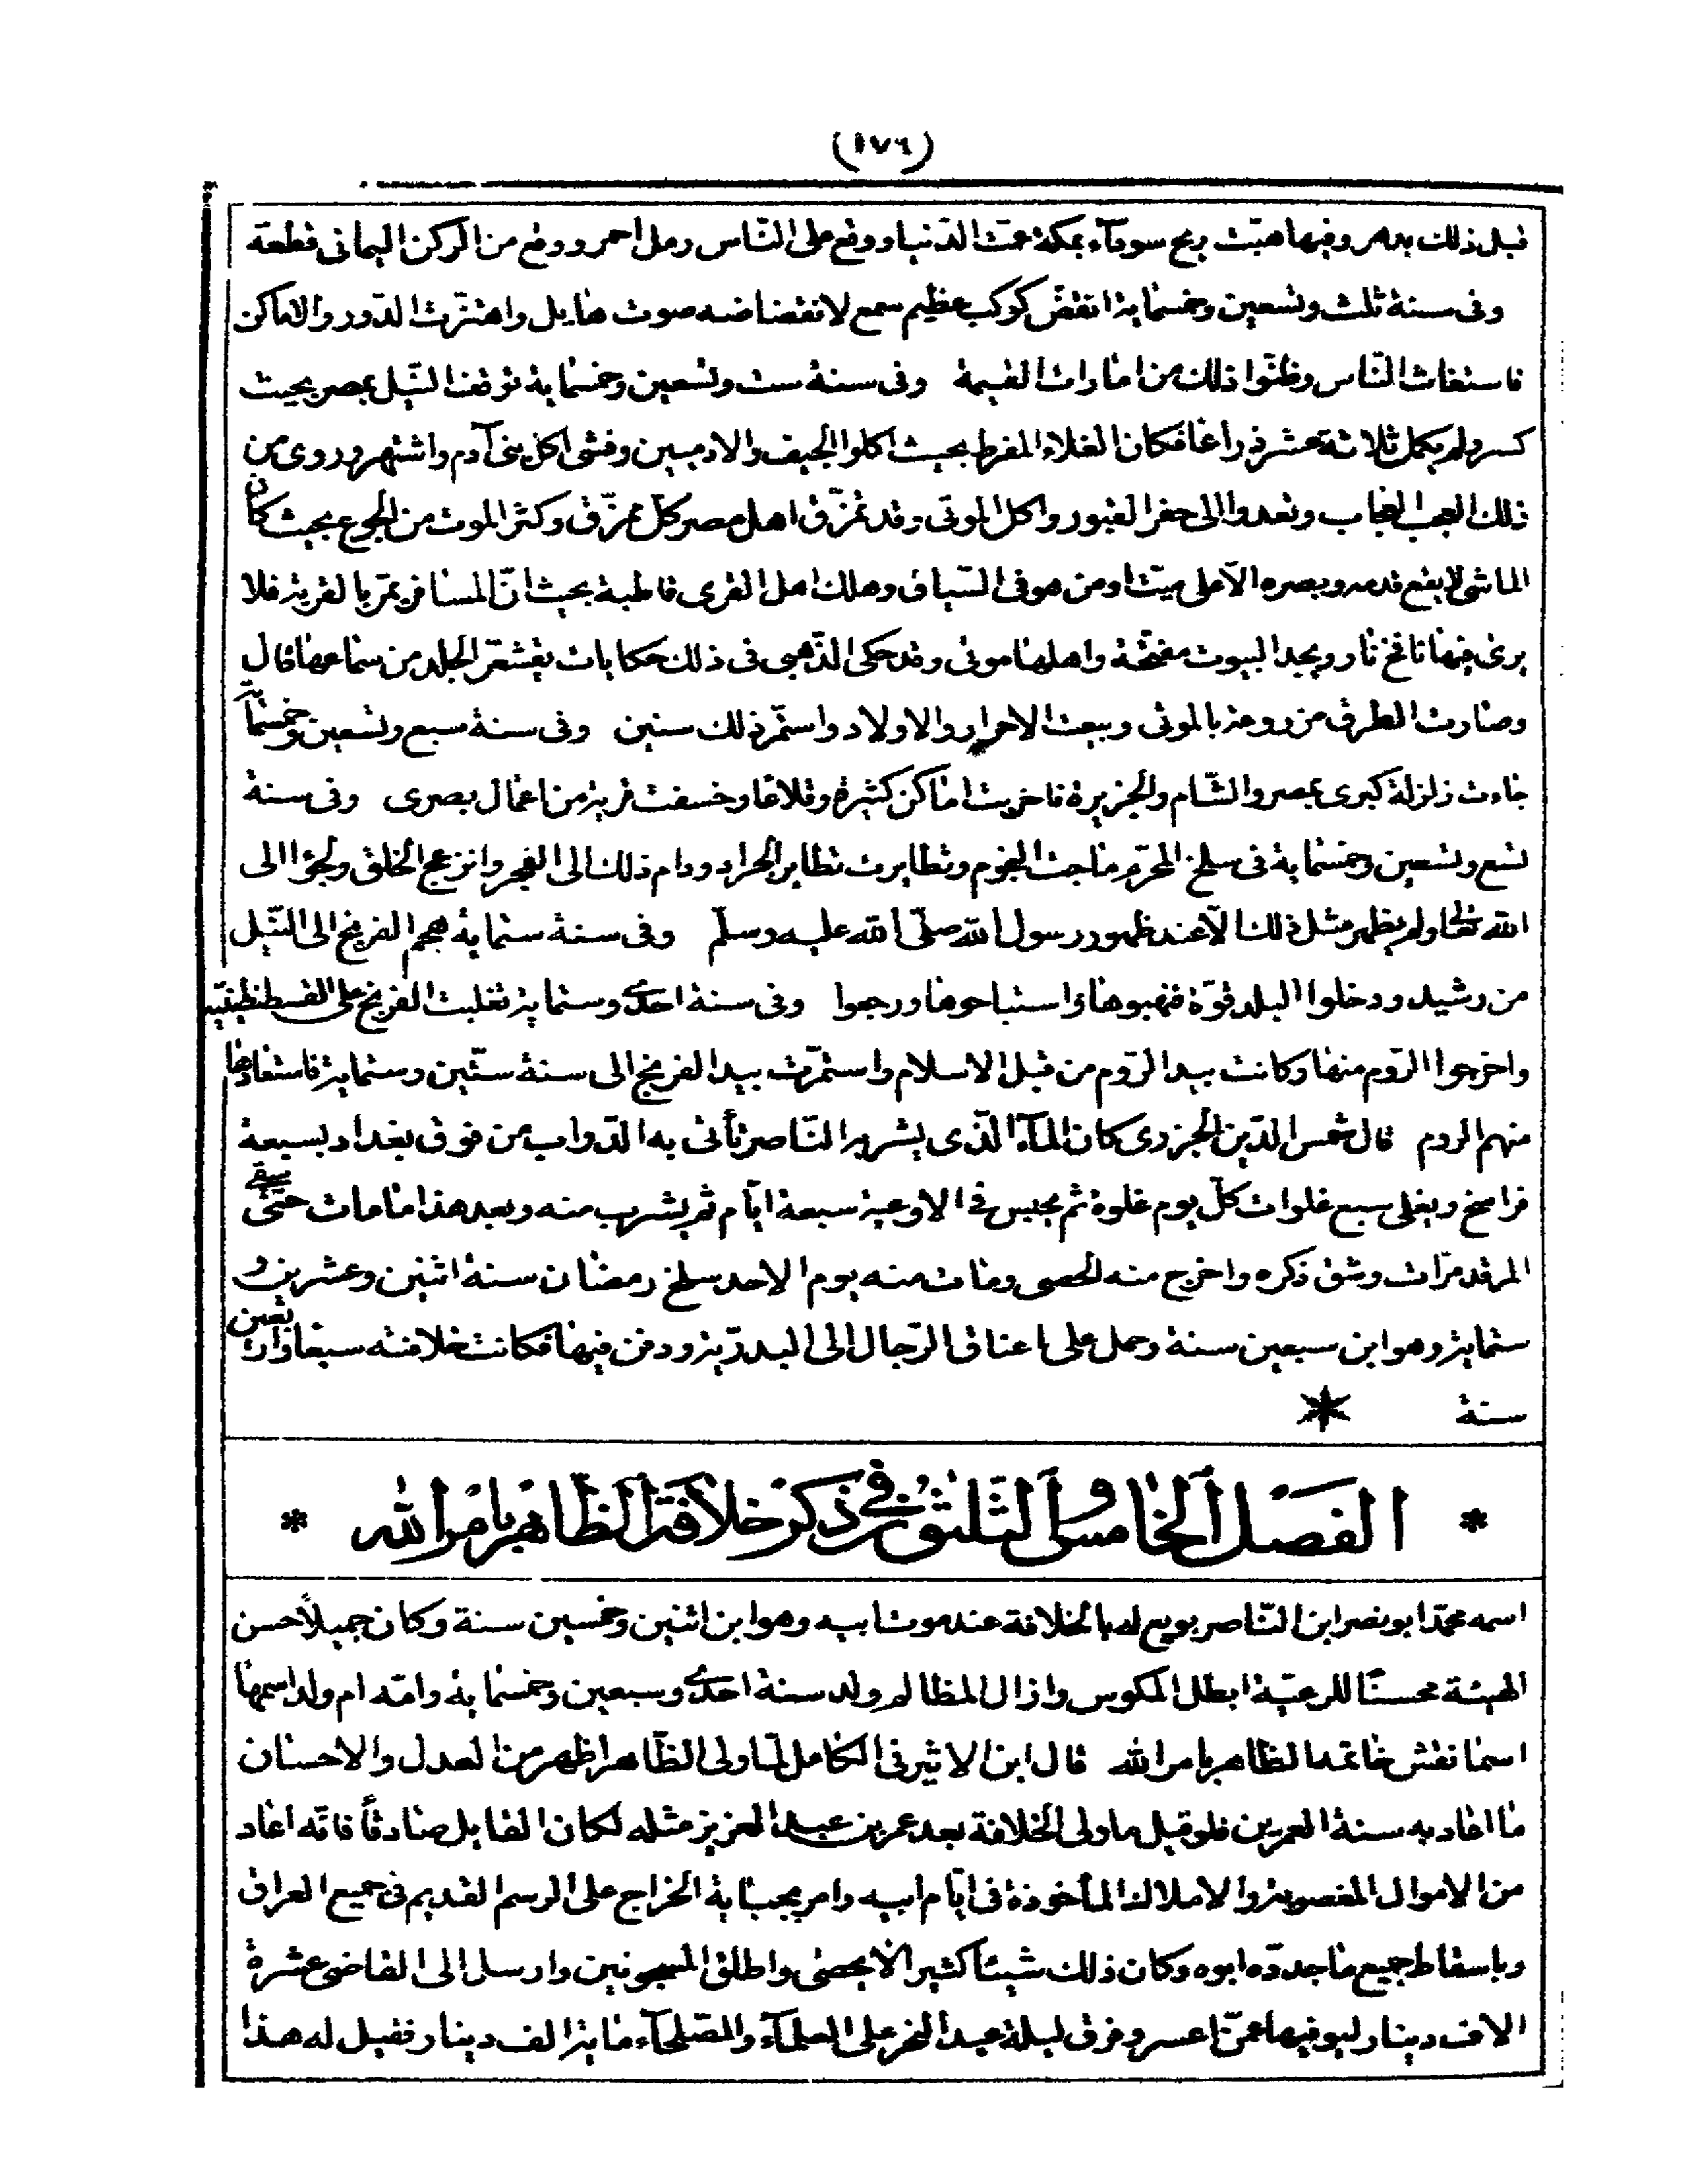 (١٧٦)
قبل ذلك بدهر وفيها هبّت ريح سودآء بمكة عمّت الدّنيا ووقع على النّاس رمل احمر ووقع من الركن اليمانى قطعة
وفى سنة ثلث وتسعين وخمسماية انقضّ كوكب عظيم سمع لانقضاضه صوت هايل واهتزّت الدّور والاماكن
فاستغاث النّاس وظنّوا ذلك من امارات القيمة وفى سنة ست وتسعين وخمسماية توقف النّيل بمصر بحيث
كسر ولم يكمل ثلاثة عشر ذراعا فكان الغلاء المفرط بحيث اكلوا الجيف والادميين وفشى اكل بنى آدم واشتهر وروى من
ذلك العجب العجاب وتعدوا الى حفر القبور واكل الموتى وقد تمزّق اهل مصر كلّ ممزّق وكثر الموت من الجوع بحيث كان
الماشى لا يقع قدمه وبصره الاّ على ميّت او من هو فى السّياق وهلك اهل القرى قاطبة بحيث انّ المسافر يمرّ بالقرية فلا
يرى فيها نافخ نار ويجد البيوت مفتّحة واهلها موتى وقد حكى الذّهبى فى ذلك حكايات يقشعرّ الجلد من سماعها قال
وصارت الطرق مزروعة بالموتى وبيعت الاحرار والاولاد واستمّر ذلك سنين وفى سنة سبع وتسعين وخمسماية
جاءت زلزلة كبرى بمصر والشّام والجزيرة فاخربت اماكن كثيرة وقلاعا وخسفت قرية من اعمال بصرى وفى سنة
تسع وتسعين وخمسماية فى سلخ المحرّم ماجت النجوم وتطايرت تطاير الجراد ودام ذلك الى الفجر وانزعج الخلق ولجؤا الى
الله تعالى ولم يظهر مثل ذلك الاّ عند ظهور رسول الله صلّى الله عليه وسلّم وفى سنة ستماية هجم الفرنج الى النّيل
من رشيد ودخلوا البلد فوّة فنهبوها واستباحوها ورجعوا وفى سنة احدى وستماية تغلبت الفرنج على القسطنطينيّة
واخرجوا الرّوم منها وكانت بيد الرّوم من قبل الاسلام واستمرّت بيد الفرنج الى سنة ستّين وستماية فاستعادها
منهم الروم قال شمس الدّين الجزرى كان المآء الّذى يشربه النّاصر تأتى به الدّواب من فوق بغداد بسبعة
فراسخ ويغلى سبع غلوات كلّ يوم غلوة ثم يحبس فى الاوعية سبعة ايّام ثم يشرب منه وبعد هذا ما مات حتّى سقى
المرقد مرّات وشق ذكره واخرج منه الحصى ومات منه يوم الاحد سلخ رمضان سنة اثنين وعشرين و
ستماية وهو ابن سبعين سنة وحمل على اعناق الرّجال الى البدرّية ودفن فيها فكانت خلافته سبعا واربعين
سنة *
* الفصل الخامس والثلثون فى ذكر خلافة الظاهر بامر الله *
اسمه محمّد ابو نصر ابن النّاصر بويع له بالخلافة عند موت ابيه وهو ابن اثنين وخمسين سنة وكان جميلاً حسن
الهيئة محسنًا للرعيّة ابطل المكوس وازال المظالم ولد سنة احدى وسبعين وخمسماية وامّه ام ولد اسمها
اسما نقش خاتمه الظاهر بامر الله قال ابن الاثير فى الكامل لمّا ولى الظّاهر اظهر من العدل والاحسان
ما اعاد به سنة العمرين فلو قيل ما ولى الخلافة بعد عمر بن عبد العزيز مثله لكان القايل صادقاً فانّه اعاد
من الاموال المغصوبة والاملاك المأخوذة فى ايّام ابيه وامر بجباية الخراج على الرسم القديم فى جميع العراق
وباسقاط جميع ما جددّه ابوه وكان ذلك شيئاً كثيرا لا يحصى واطلق المسجونين وارسل الى القاضى عشرة
الاف دينار ليوفيها عمّن اعسر وفرق ليلة عيد النحر على العلمآء والصّلحآء ماية الف دينار فقيل له هذا